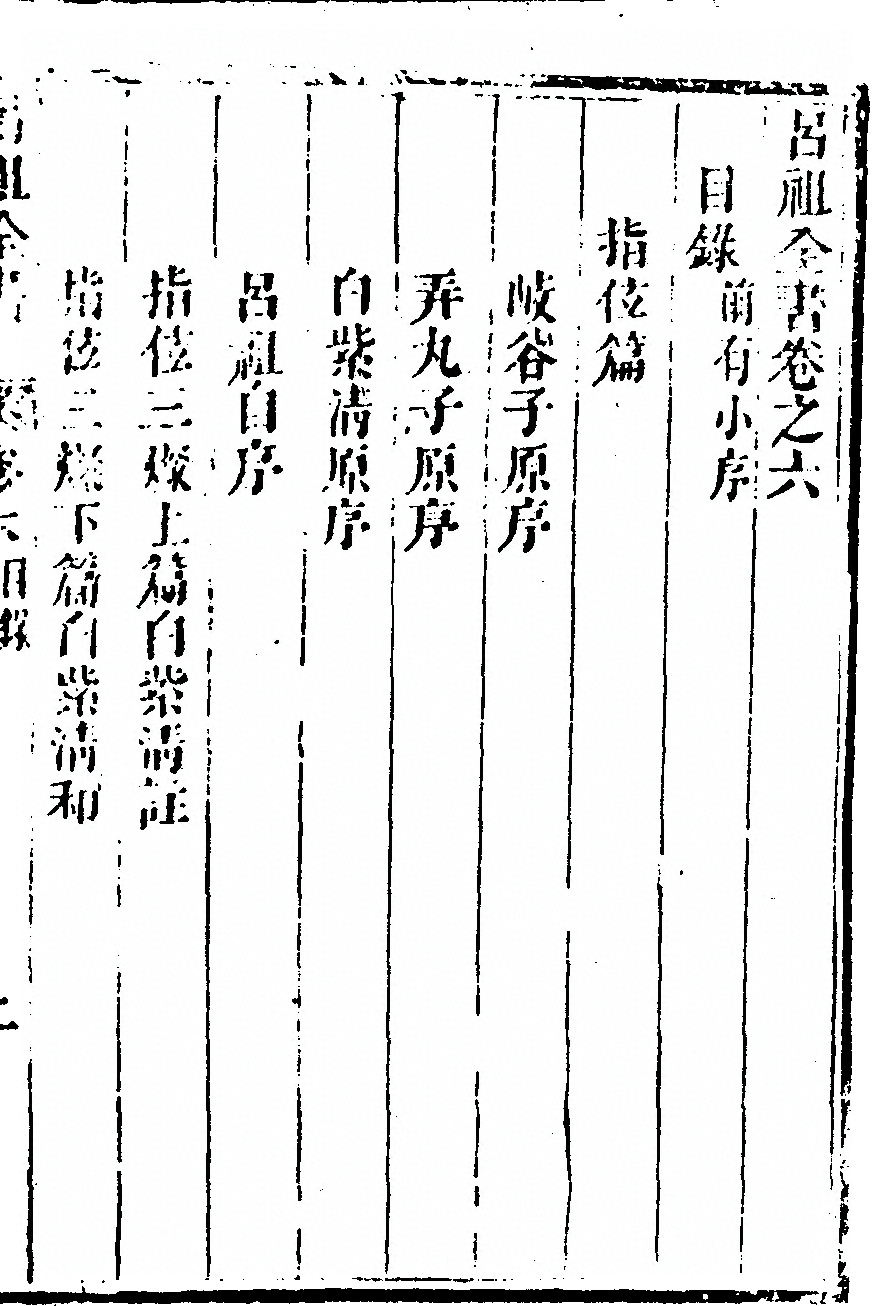 呂祖全書卷之六
目錄前有小序
指伭篇
岐谷子原序
弄丸子原序
白紫清原序
呂祖自序
指伭三嫁上篇白紫清註
指伭三嫁下篇白紫清和
呂祖全書 卷六目錄